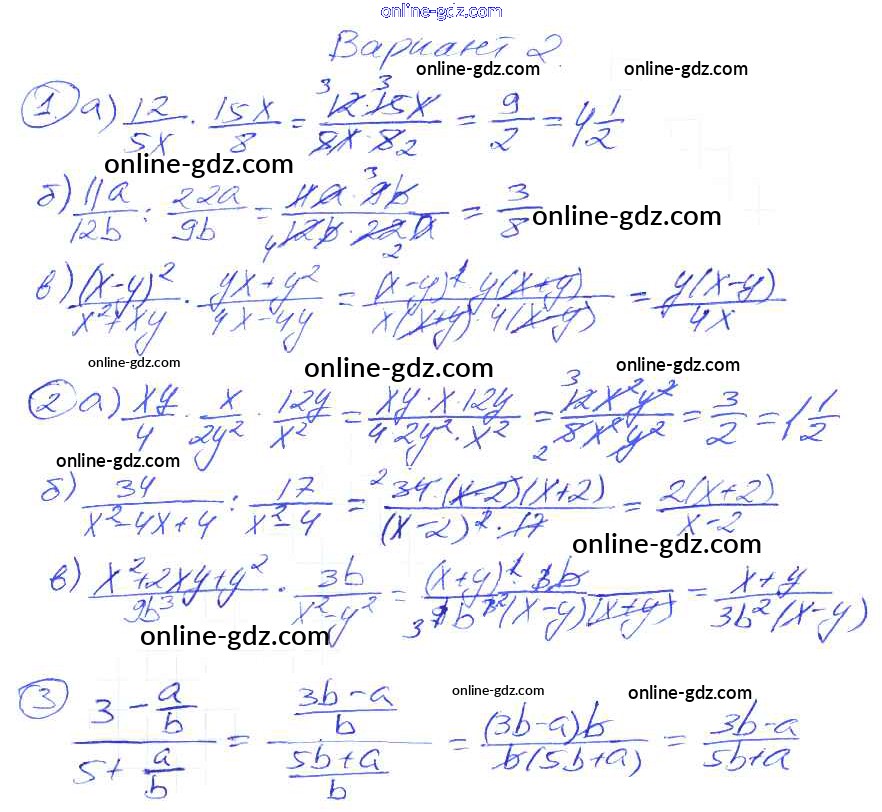 online-gdz.com
Вариант 2
online-gdz.com online-gdz.com
① а) 12/5x · 15x/8 = 12·15x/8x·8 = 9/2 = 4 1/2
online-gdz.com
б) 11a/12b : 22a/9b = 11a·9b/12b·22a = 3/8
online-gdz.com
в) (x-y)²/x²+xy · yx+y²/4x-4y = (x-y)² y(x+y)/x(x+y)·4(x-y) = y(x-y)/4x
online-gdz.com online-gdz.com online-gdz.com
② а) xy/4 · x/2y² · 12y/x² = xy·x·12y/4·2y²·x² = 12x²y²/8x²y² = 3/2 = 1 1/2
online-gdz.com online-gdz.com
б) 34/x²-4x+4 : 17/x²-4 = 34·(x-2)(x+2)/(x-2)²·17 = 2(x+2)/x-2
online-gdz.com
в) x²+2xy+y²/9b³ · 3b/x²-y² = (x+y)²·3b/9b³(x-y)(x+y) = x+y/3b²(x-y)
online-gdz.com
online-gdz.com online-gdz.com
③ 3-a/b / 5+a/b = 3b-a/b / 5b+a/b = (3b-a)b/b(5b+a) = 3b-a/5b+a